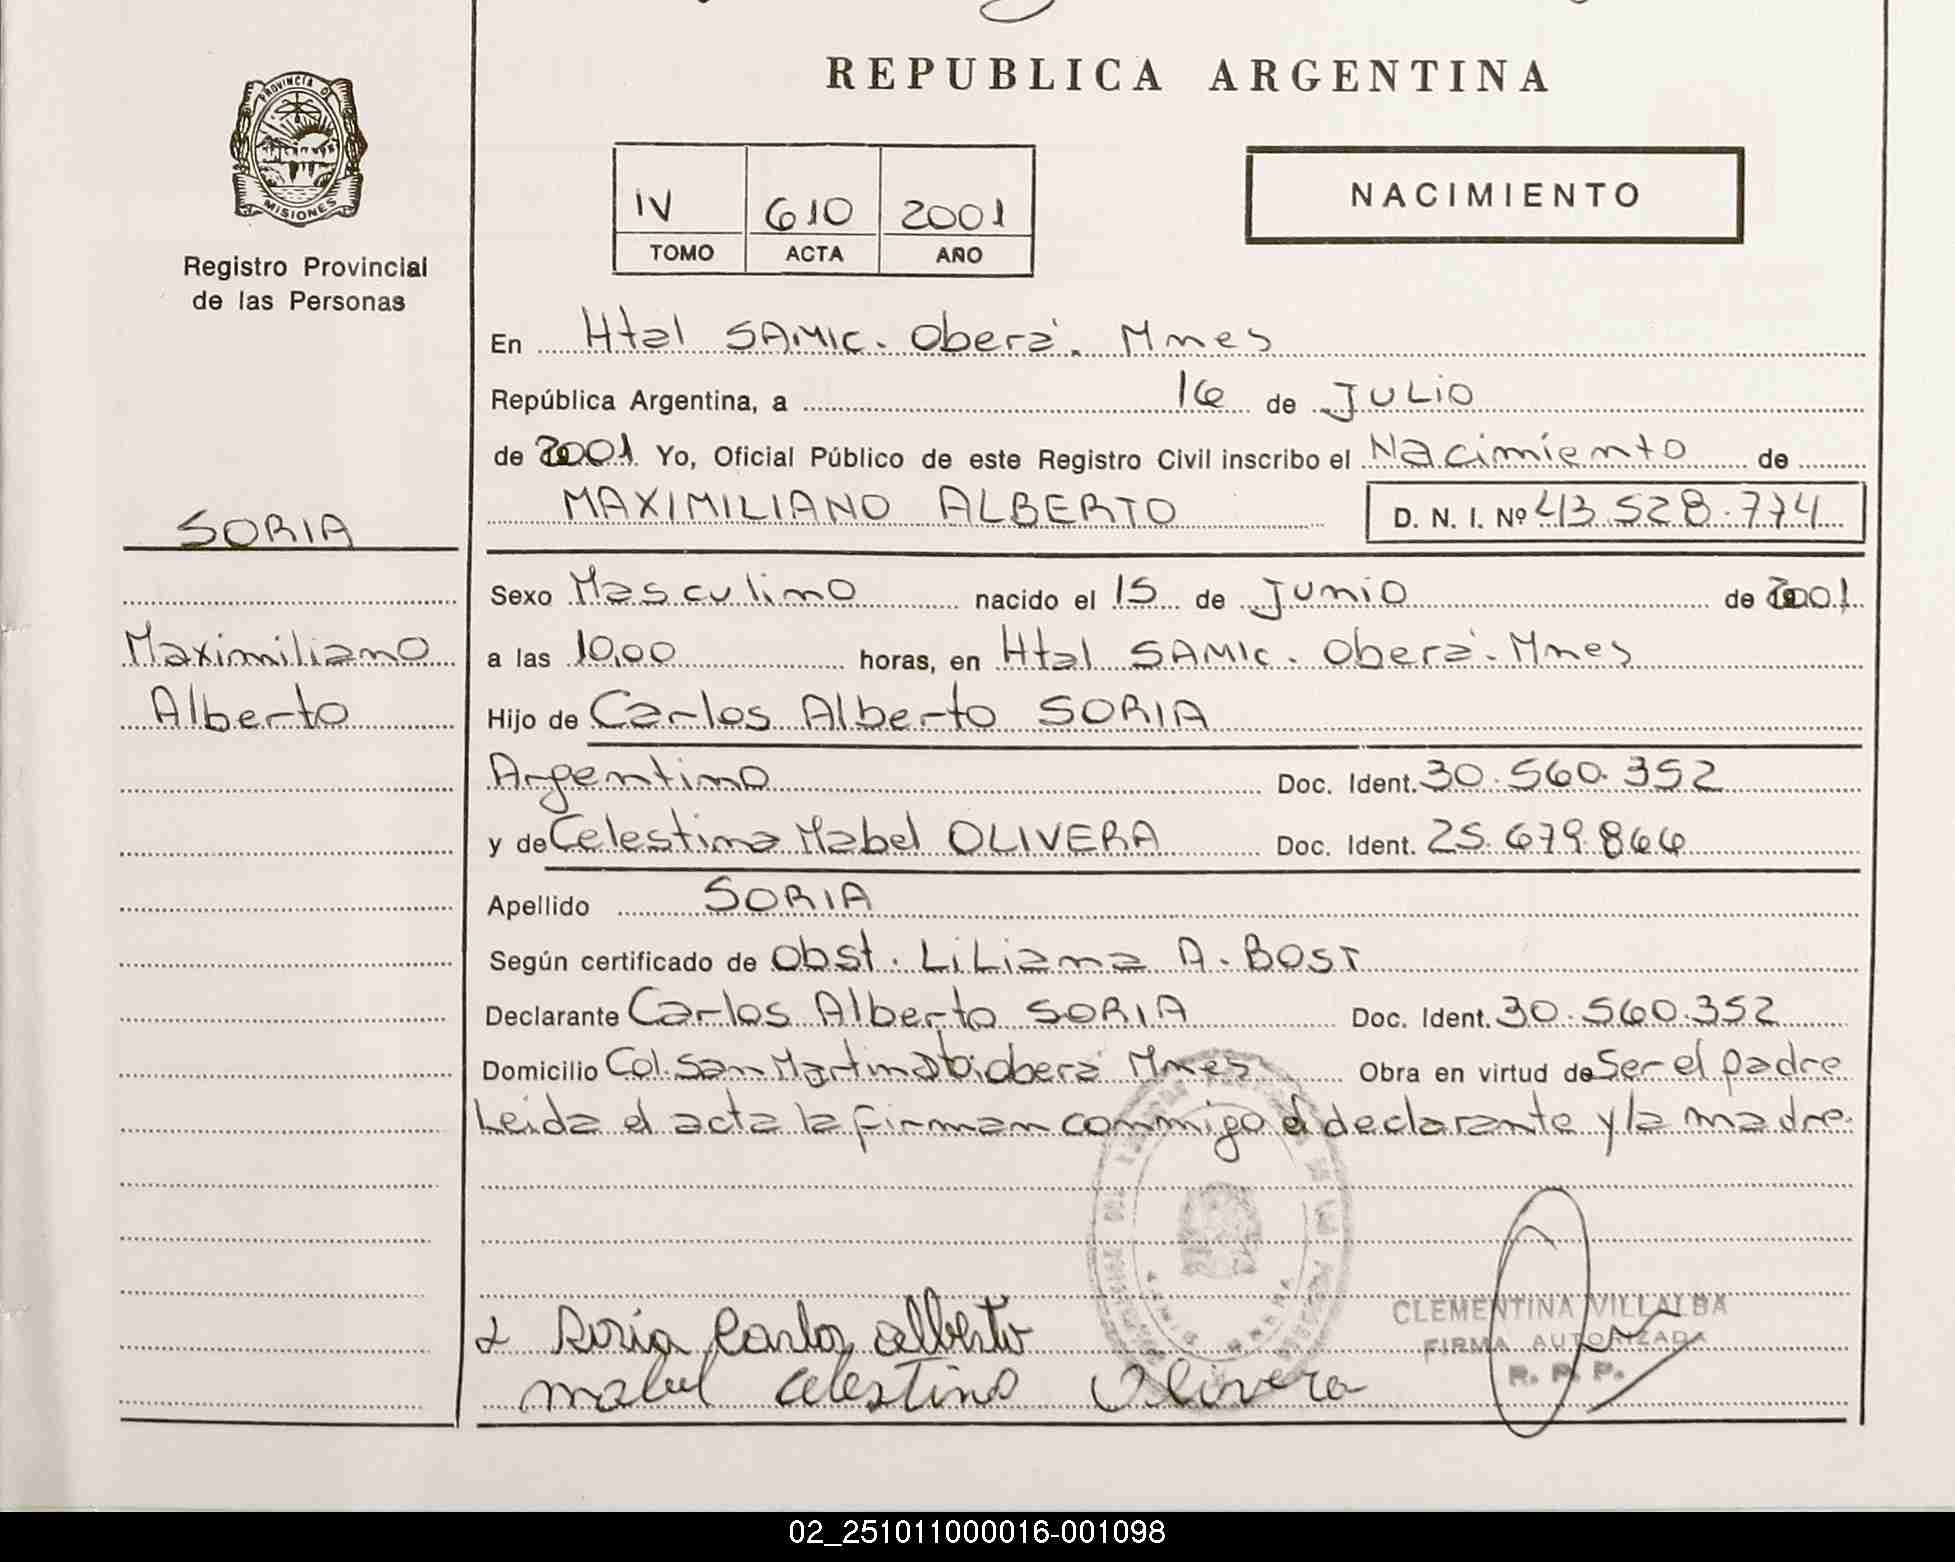 REPUBLICA ARGENTINA
PROVINCIA D MISIONES
Registro Provincial
de las Personas
IV 610 2001
TOMO ACTA AÑO
NACIMIENTO
En Htal SAMIC. Oberá. Mnes
República Argentina, a 16 de JULIO
de 2001 Yo, Oficial Público de este Registro Civil inscribo el Nacimiento de
MAXIMILIANO ALBERTO D. N. I. Nº 43.528.774
SORIA
Maximiliano
Alberto
Sexo Masculino nacido el 15 de Junio de 2001
a las 10,00 horas, en Htal SAMIC. Oberá. Mnes
Hijo de Carlos Alberto SORIA
Argentino Doc. Ident. 30.560.352
y de Celestina Mabel OLIVERA Doc. Ident. 25.679.866
Apellido SORIA
Según certificado de Obst. LiLiana A. BOST
Declarante Carlos Alberto SORIA Doc. Ident. 30.560.352
Domicilio Col. San Martin Oberá Mnes Obra en virtud de Ser el padre
Leida el acta la firman conmigo el declarante y la madre.
CLEMENTINA VILLALBA
FIRMA AUTORIZADA
R. P. P.
Soria Carlos alberto
mabel celestina Olivera
02_251011000016-001098